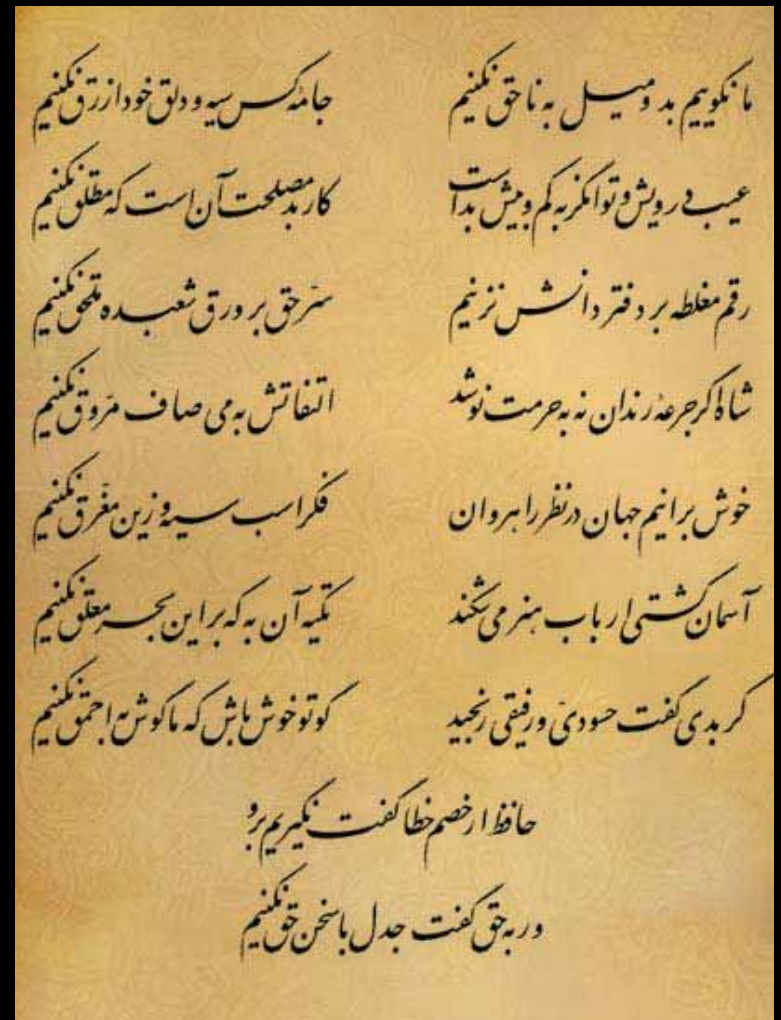 ما نگوییم بد و میل به ناحق نکنیم جامهٔ کس سیه و دلق خود ازرق نکنیم
عیب درویش و توانگر به کم و بیش بد است کار بد مصلحت آن است که مطلق نکنیم
رقم مغلطه بر دفتر دانش نزنیم سرّ حق بر ورق شعبده ملحق نکنیم
شاه اگر جرعهٔ رندان نه به حرمت نوشد التفاتش به می صاف مروّق نکنیم
خوش برانیم جهان در نظر راهروان فکر اسب سیه و زین مغرّق نکنیم
آسمان کشتی ارباب هنر می‌شکند تکیه آن به که بر این بحر معلّق نکنیم
گر بدی گفت حسودیّ و رفیقی رنجید گو تو خوش باش که ما گوش به احمق نکنیم
حافظ ار خصم خطا گفت نگیریم برو
ور به حق گفت جدل با سخن حق نکنیم